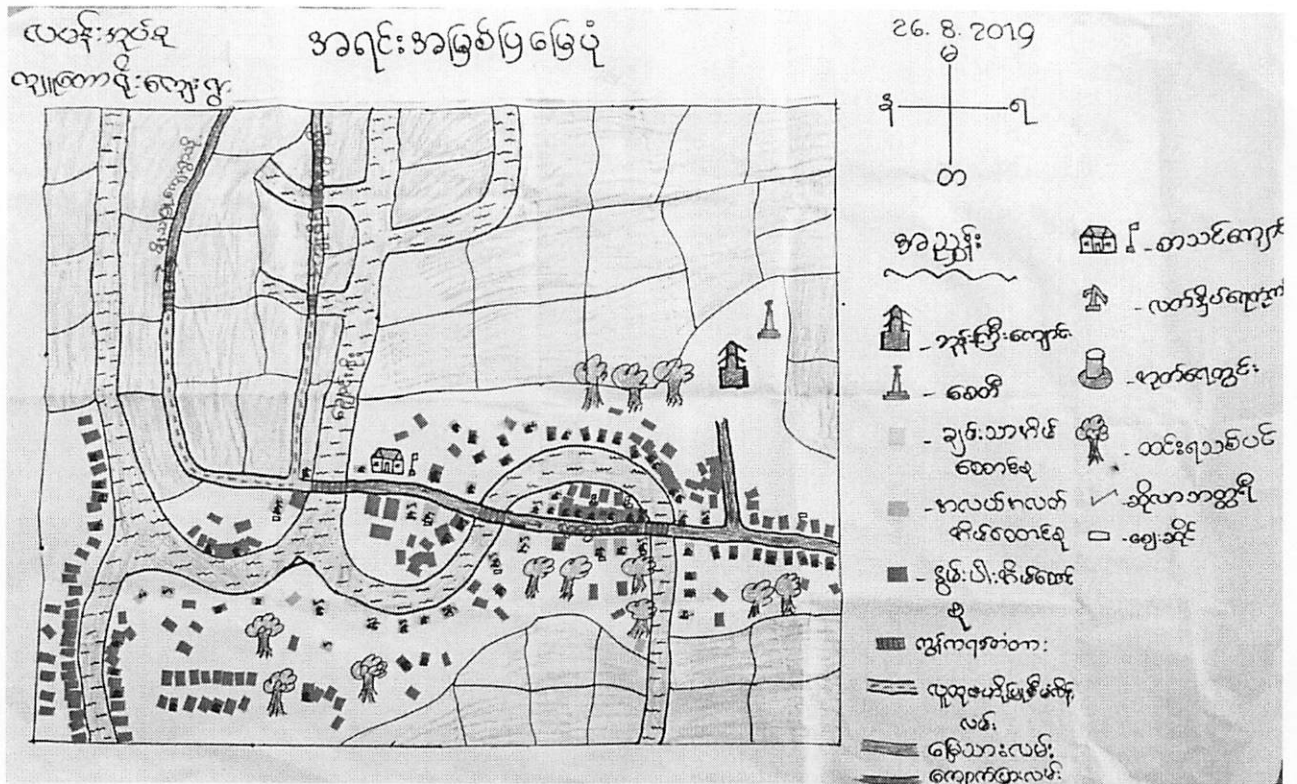 လပန်းအုပ်စု
ကျူတောရိုးကျေးရွာ
အရင်းအမြစ်ပြမြေပုံ
26. 8. 2019
မ
န
ရ
တ
အညွှန်း
- ဘုန်းကြီးကျောင်း
- စေတီ
- ချမ်းသာအိမ်
ထောင်စု
- အလယ်အလတ်
အိမ်ထောင်စု
- နွမ်းပါးအိမ်ထောင်
စု
ကွန်ကရစ်တံတား
လမ်း
မြေသားလမ်း
ကျောက်ပြားလမ်း
- စာသင်ကျောင်း
- လက်နှိပ်ရေတွင်း
- အုတ်ရေတွင်း
- ထင်းရသစ်ပင်
- ဆိုလာဘတ္ထရီ
- ဈေးဆိုင်